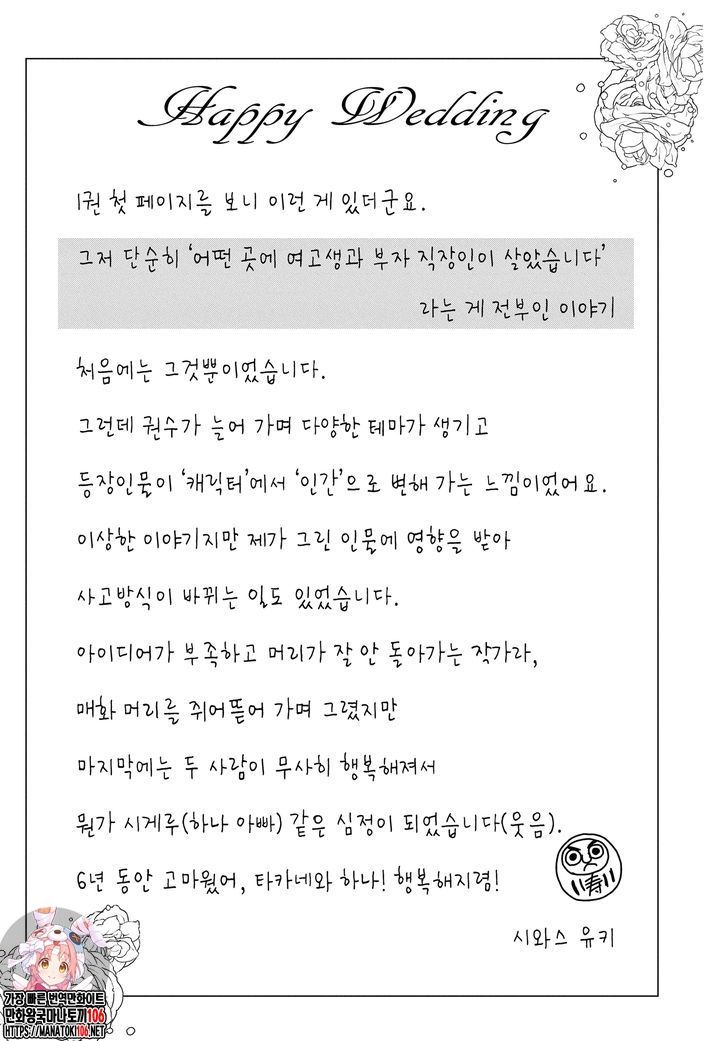 Happy Wedding
1권 첫 페이지를 보니 이런 게 있더군요.
그저 단순히 ‘어떤 곳에 여고생과 부자 직장인이 살았습니다’
라는 게 전부인 이야기
처음에는 그것뿐이었습니다.
그런데 권수가 늘어 가며 다양한 테마가 생기고
등장인물이 ‘캐릭터’에서 ‘인간’으로 변해 가는 느낌이었어요.
이상한 이야기지만 제가 그린 인물에 영향을 받아
사고방식이 바뀌는 일도 있었습니다.
아이디어가 부족하고 머리가 잘 안 돌아가는 작가라,
매화 머리를 쥐어뜯어 가며 그렸지만
마지막에는 두 사람이 무사히 행복해져서
뭔가 시게루(하나 아빠) 같은 심정이 되었습니다(웃음).
6년 동안 고마웠어, 타카네와 하나! 행복해지렴!
寿
시와스 유키
가장 빠른 번역만화이트
만화왕국마나토끼106
HTTPS://MANATOKI106.NET